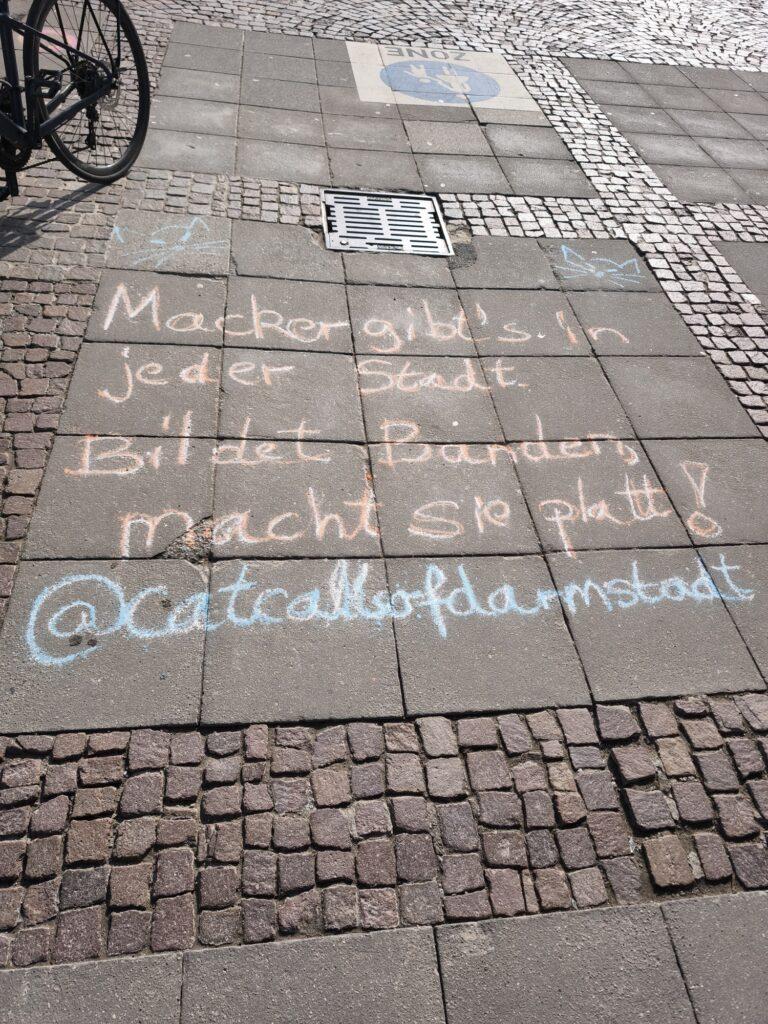 ZONE
Macker gibt's in
jeder Stadt
Bildet Banden,
macht sie platt!
@catcallsofdarmstadt